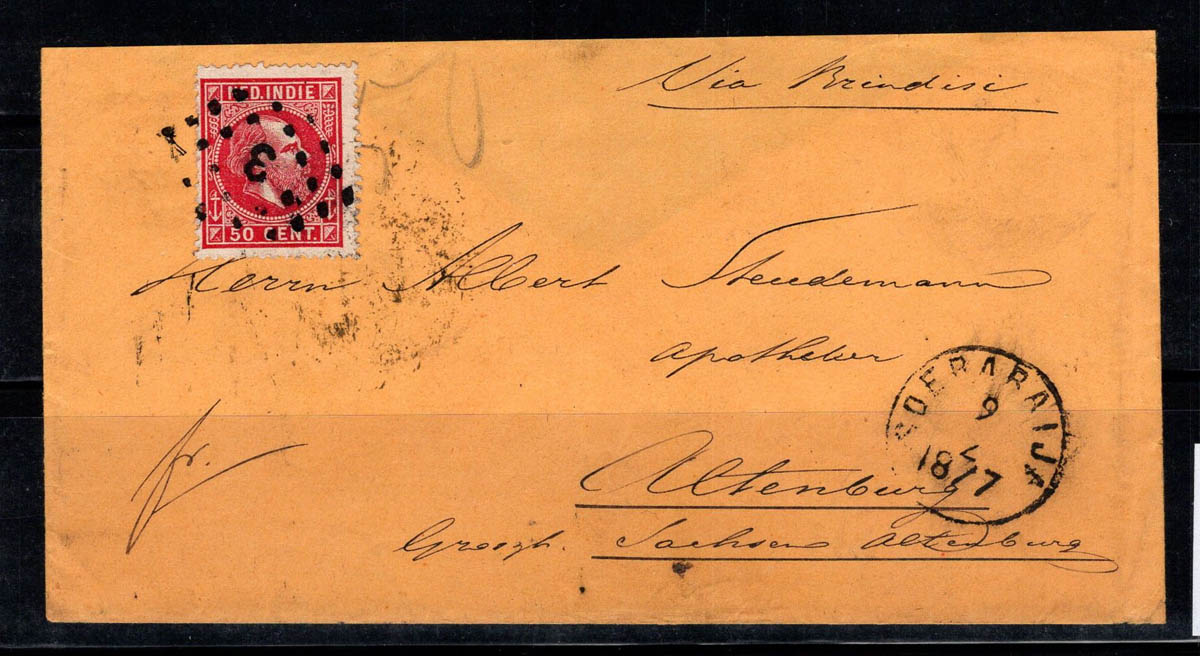 Via Brindisi
NED. INDIE
3
50 CENT.
Herrn Albert Steudemann
Apotheker
SOERABAIJA
9
1877
fr.
Altenburg
Groszh. Sachsen Altenburg